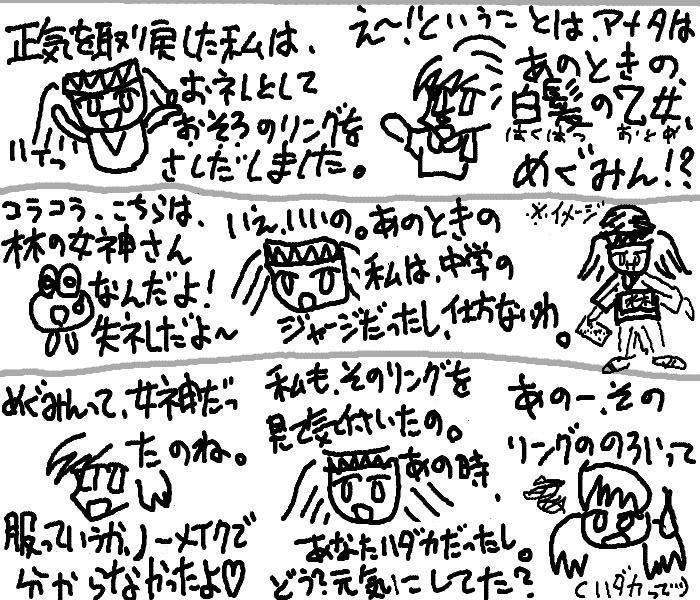 正気を取り戻した私は、
お礼として
おそろのリングを
さしだしました。
ハイっ
え〜!!ということは、アナタは
あのときの、
白髪の乙女、
はくはつ おとめ
めぐみん!?
コラコラ、こちらは、
林の女神さん
なんだよ!
失礼だよ〜
いえ、いいの。あのときの
私は、中学の
ジャージだったし、仕方ないわ。
※イメージ
林
めぐみんって、女神だっ
たのね。
服っていうか、ノーメイクで
分からなかったよ♡
私も、そのリングを
見て気付いたの。
あの時、
あなたハダカだったし。
どう?元気にしてた?
あのー、その
リングののろいって
(ハダカって…)